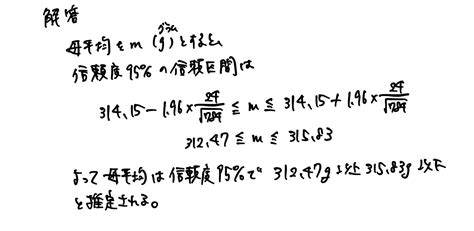 解答
母平均を m (g)とすると、
グラム
信頼度95%の信頼区間は
314.15-1.96×24/√784≦m≦314.15+1.96×24/√784
312.47≦m≦315.83
よって母平均は信頼度95%で312.47g以上315.83g以下
と推定される。